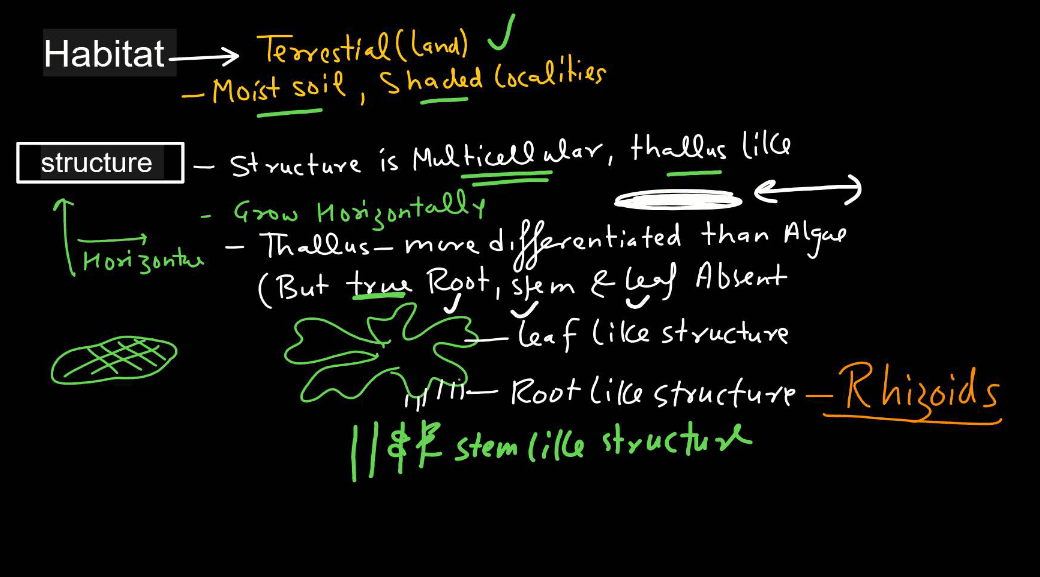 Habitat → Terrestial (land) ✓
- Moist soil, Shaded localities
structure - Structure is Multicellular, thallus like
- Grow Horizontally
Horizontal
- Thallus - more differentiated than Algae
(But true Root, stem & leaf Absent
leaf like structure
Root like structure - Rhizoids
stem like structure